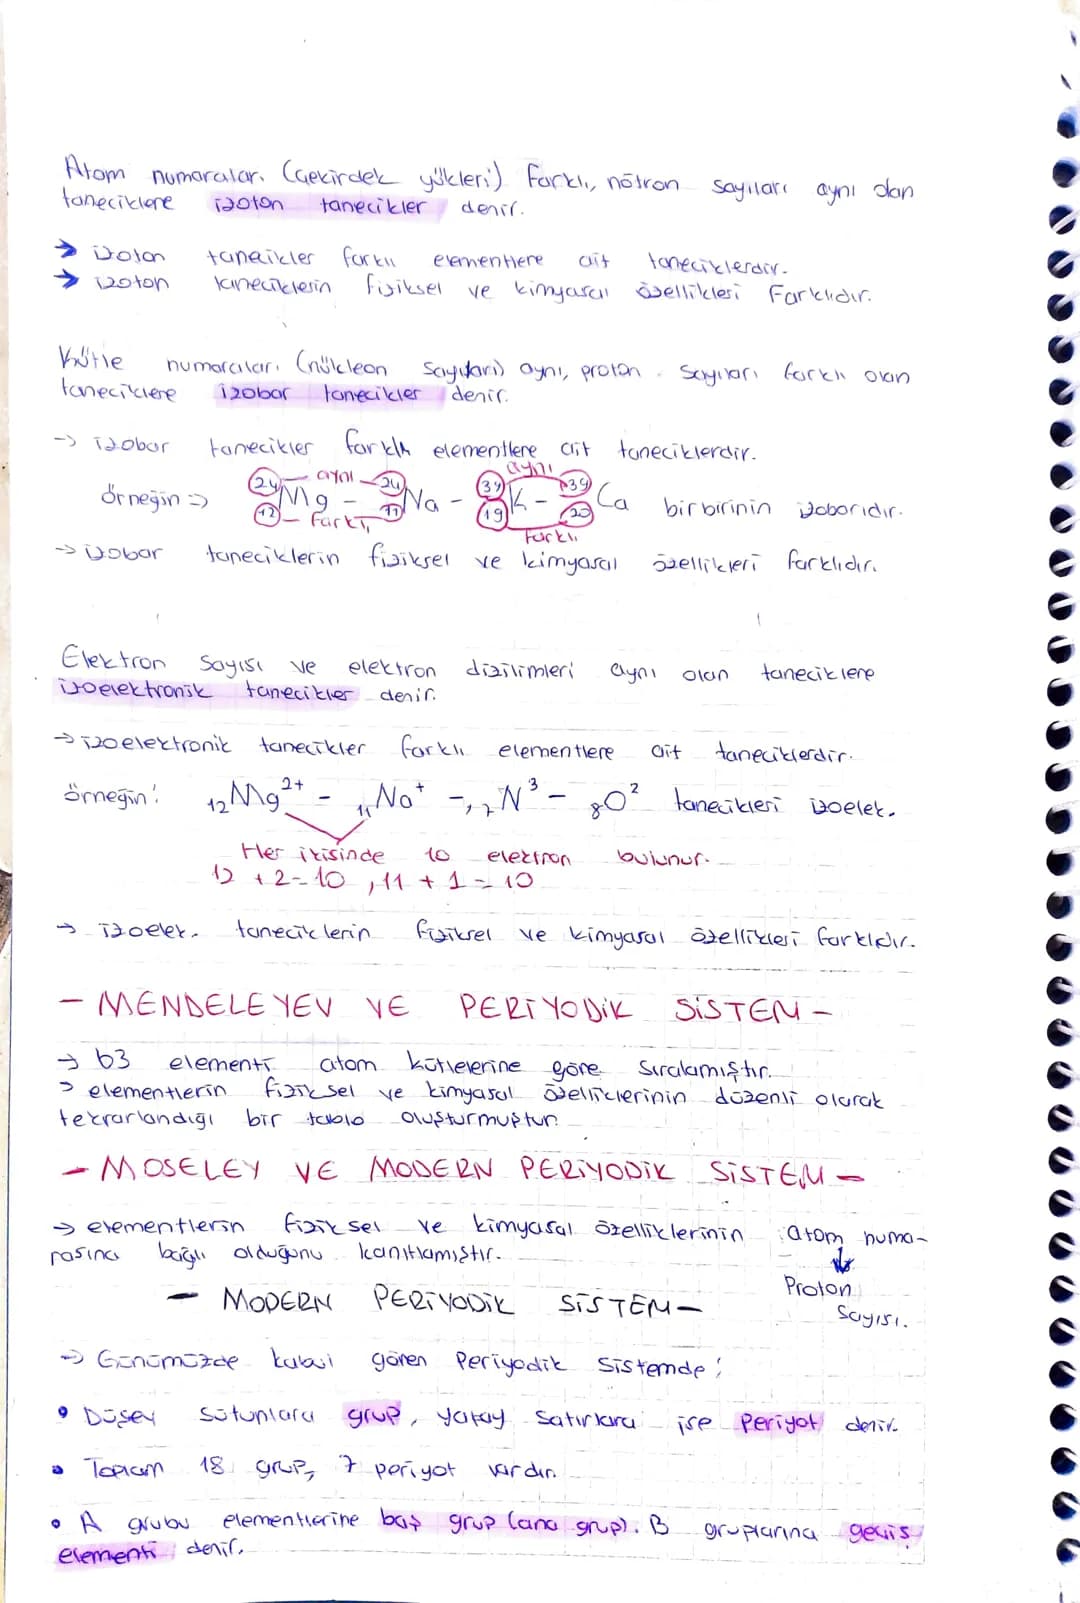 Atom numaraları (Çekirdek yükleri) farklı, nötron sayıları aynı olan
taneciklere izoton tanecikler denir.
→ izoton tanecikler farklı elementlere ait taneciklerdir.
→ izoton taneciklerin fiziksel ve kimyasal özellikleri Farklıdır.
Kütle numaraları (nükleon sayıları) aynı, proton sayıları farklı olan
taneciklere izobar tanecikler denir.
→ izobar tanecikler farklı elementlere ait taneciklerdir.
aynı aynı
örneğin => 24 12 Mg - 24 11 Na - 39 19 K - 39 20 Ca birbirinin izobarıdır.
farklı farklı
→ izobar taneciklerin fiziksel ve kimyasal özellikleri farklıdır.
Elektron sayısı ve elektron dizilimleri aynı olan taneciklere
izoelektronik tanecikler denir.
→ izoelektronik tanecikler farklı elementlere ait taneciklerdir.
örneğin: 12Mg²⁺ - 11Na⁺ -, 7N³ - 8O² tanecikleri izoelek.
Her ikisinde 10 elektron bulunur.
12 + 2 = 10, 11 + 1 = 10
→ izoelek. taneciklerin fiziksel ve kimyasal özellikleri farklıdır.
- MENDELEYEV VE PERİYODİK SİSTEM -
→ 63 elementi atom kütlelerine göre sıralamıştır.
→ elementlerin fiziksel ve kimyasal özelliklerinin düzenli olarak
tekrarlandığı bir tablo oluşturmuştur.
- MOSELEY VE MODERN PERİYODİK SİSTEM -
→ elementlerin fiziksel ve kimyasal özelliklerinin atom numa-
rasına bağlı olduğunu kanıtlamıştır.
Proton
Sayısı.
- MODERN PERİYODİK SİSTEM -
→ Günümüzde kabul gören Periyodik Sistemde;
• Düşey sütunlara grup, yatay satırlara ise periyot denir.
• Toplam 18 grup, 7 periyot vardır.
• A grubu elementlerine baş grup (ana grup). B gruplarına geçiş
elementi denir.